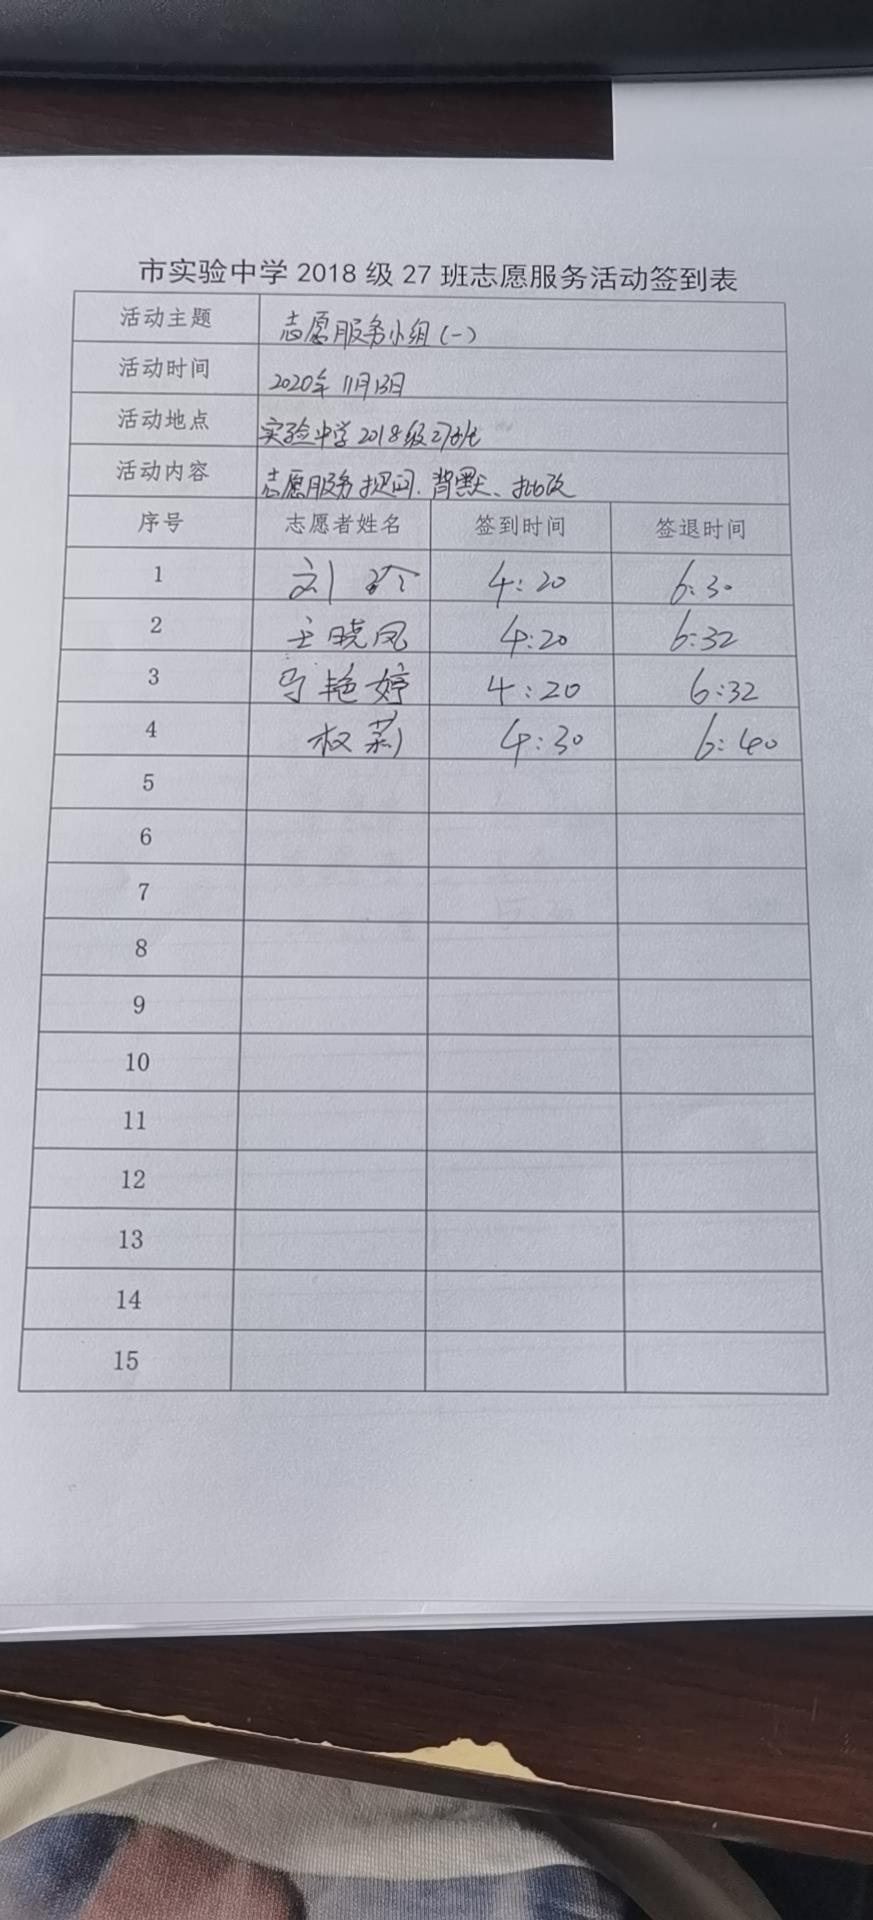 市实验中学2018级27班志愿服务活动签到表
活动主题 志愿服务小组(一)
活动时间 2020年11月13日
活动地点 实验中学2018级27班
活动内容 志愿服务提问、背默、批改
序号 志愿者姓名 签到时间 签退时间
1 刘玲 4:20 6:30
2 王晓凤 4:20 6:32
3 艳婷 4:20 6:32
4 权莉 4:30 6:40
5
6
7
8
9
10
11
12
13
14
15